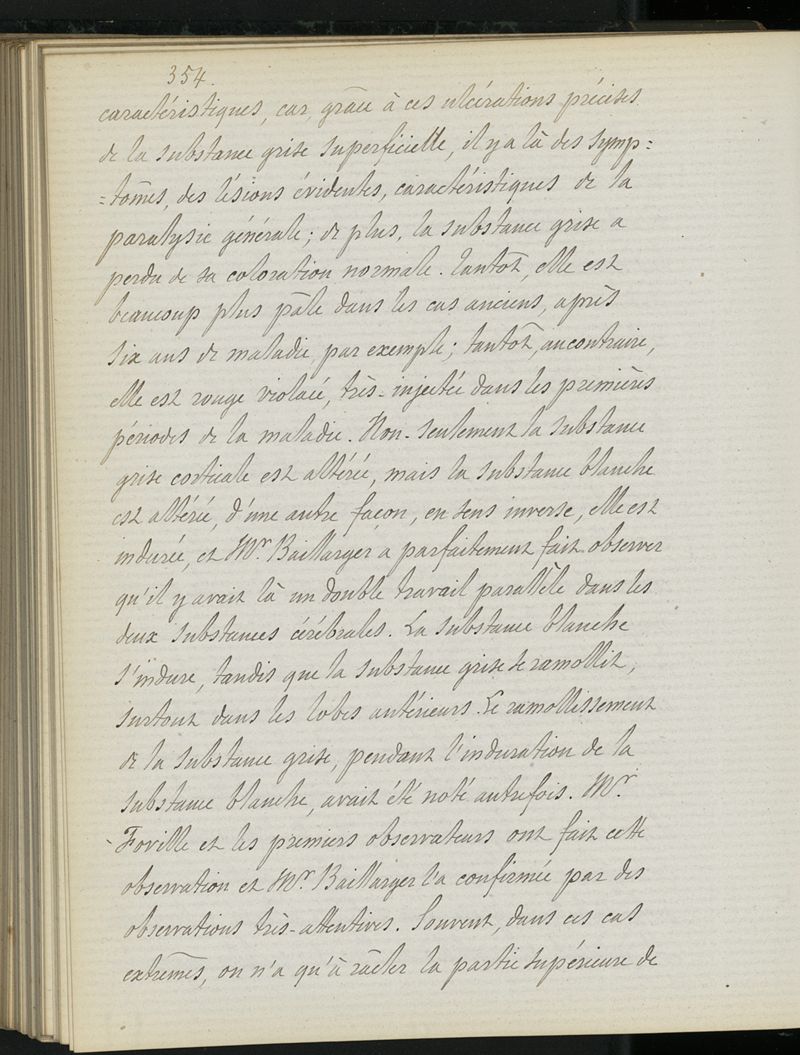 354.
caractéristiques, car, grâce à ces ulcérations précises
de la substance grise superficielle, il y a là des symp=
=tômes, des lésions évidentes, caractéristiques de la
paralysie générale; de plus, la substance grise a
perdu de sa coloration normale. Tantôt, elle est
beaucoup plus pâle dans les cas anciens, après
six ans de maladie par exemple; tantôt, au contraire,
elle est rouge violacé, très-injectée dans les premières
périodes de la maladie. Non-seulement la substance
grise corticale est altérée, mais la substance blanche
est altérée, d'une autre façon, en sens inverse, elle est
indurée, et Mr. Baillarger a parfaitement fait observer
qu'il y avait là un double travail parallèle dans les
deux substances cérébrales. La substance blanche
s'indure, tandis que la substance grise se ramollit,
surtout dans les lobes antérieurs. Le ramollissement
de la substance grise, pendant l'induration de la
substance blanche, avait été noté autrefois. Mr.
Foville et les premiers observateurs ont fait cette
observation et Mr. Baillarger l'a confirmée par des
observations très-attentives. Souvent, dans ces cas
extrêmes, on n'a qu'à râcler la partie supérieure de